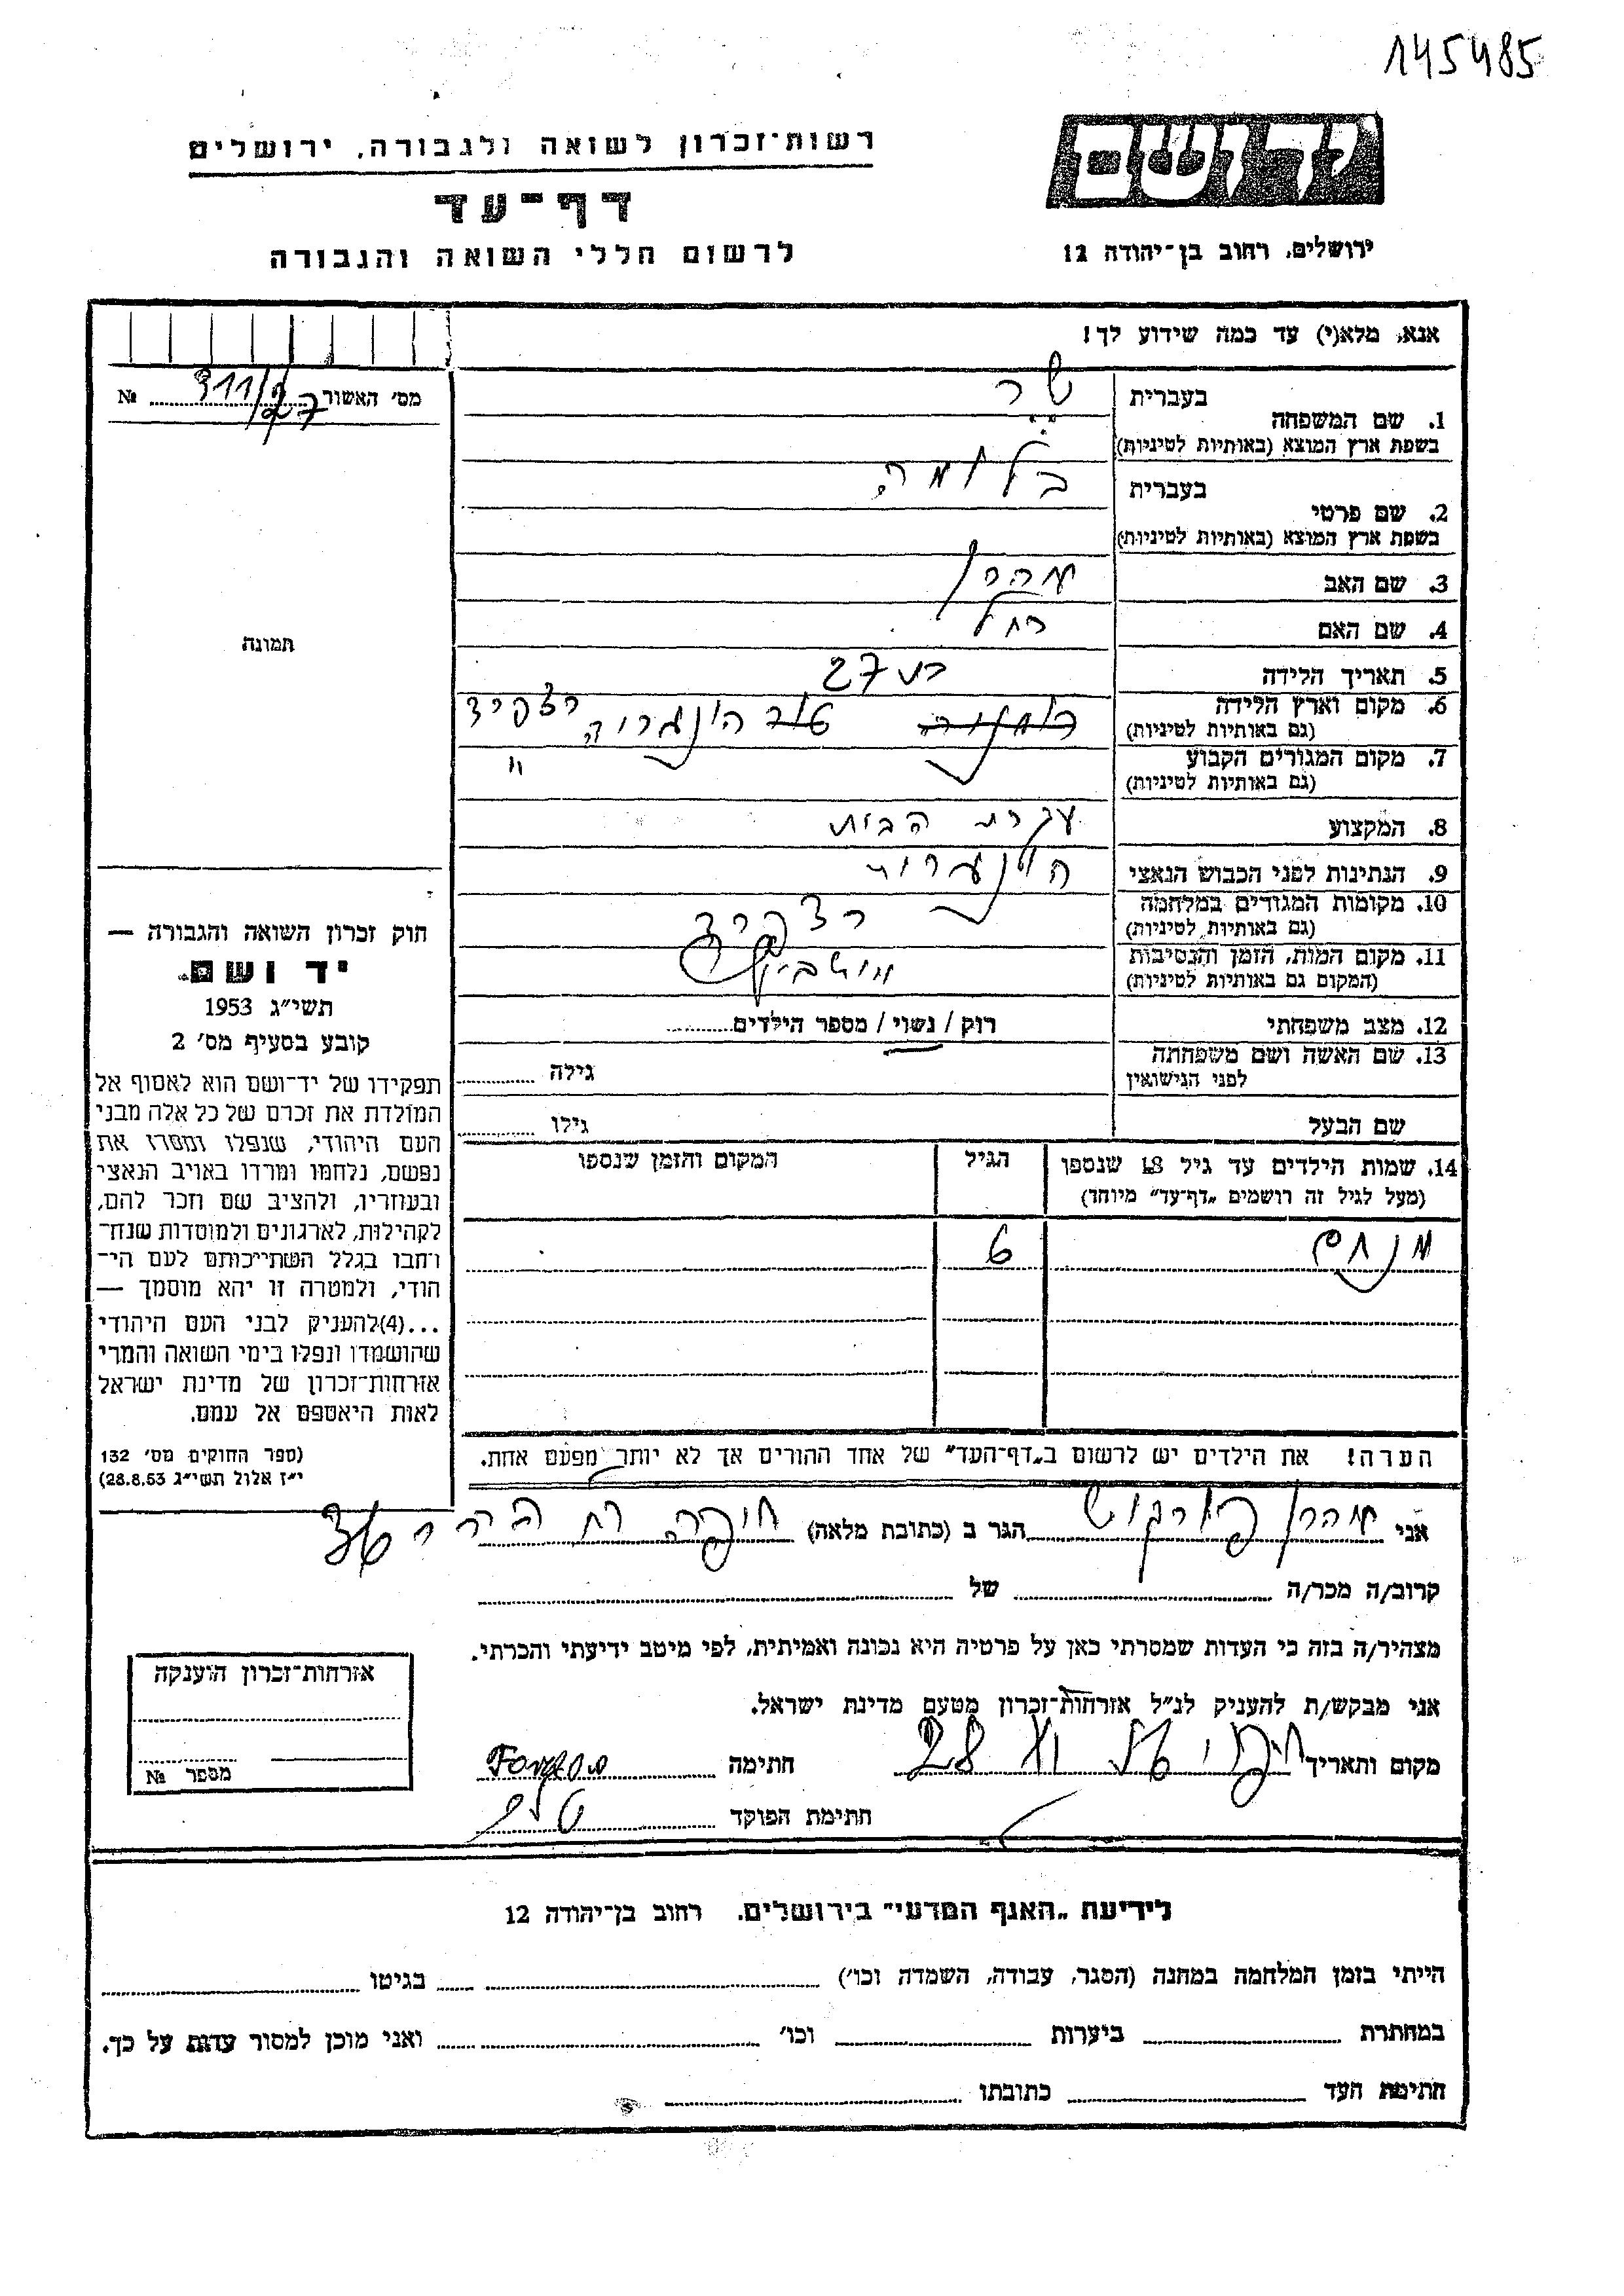 145485
יד ושם
רשות־זכרון לשואה ולגבורה, ירושלים
דף־עד
לרשום חללי השואה והגבורה
ירושלים, רחוב בן־יהודה 12
אנא, מלא(י) עד כמה שידוע לך!
מס׳ האשור 311/27 №
1. שם המשפחה
בעברית
בשפת ארץ המוצא (באותיות לטיניות)
2. שם פרטי
בעברית בלומה
בשפת ארץ המוצא (באותיות לטיניות)
3. שם האב אהרן
4. שם האם רחל
5. תאריך הלידה בת 27
6. מקום וארץ הלידה הונגריה
(גם באותיות לטיניות)
7. מקום המגורים הקבוע "
(גם באותיות לטיניות)
8. המקצוע עקרת הבית
9. הנתינות לפני הכבוש הנאצי
10. מקומות המגורים במלחמה
(גם באותיות לטיניות)
11. מקום המות, הזמן והנסיבות אושביץ
(המקום גם באותיות לטיניות)
12. מצב משפחתי רוק / נשוי / מספר הילדים
13. שם האשה ושם משפחתה גילה
לפני הנישואין
שם הבעל גילו
14. שמות הילדים עד גיל 18 שנספו הגיל המקום והזמן שנספו
(מעל לגיל זה רושמים „דף־עד״ מיוחד)
מנחם 6
הערה! את הילדים יש לרשום ב„דף־העד״ של אחד ההורים אך לא יותר מפעם אחת.
תמונה
חוק זכרון השואה והגבורה —
יד ושם
תשי״ג 1953
קובע בסעיף מס׳ 2
תפקידו של יד־ושם הוא לאסוף אל
המולדת את זכרם של כל אלה מבני
העם היהודי, שנפלו ומסרו את
נפשם, נלחמו ומרדו באויב הנאצי
ובעוזריו, ולהציב שם וזכר להם,
לקהילות, לארגונים ולמוסדות שנח־
רחבו בגלל השתייכותם לעם הי־
הודי, ולמטרה זו יהא מוסמך —
...(4)להעניק לבני העם היהודי
שהושמדו ונפלו בימי השואה והמרי
אזרחות־זכרון של מדינת ישראל
לאות היאספם אל עמם.
(ספר החוקים מס׳ 132
י״ז אלול תשי״ג 28.8.53)
אני אהרן הגר ב (כתובת מלאה) חיפה
קרוב/ה מכר/ה של
מצהיר/ה בזה כי העדות שמסרתי כאן על פרטיה היא נכונה ואמיתית, לפי מיטב ידיעתי והכרתי.
אני מבקש/ת להעניק לנ״ל אזרחות־זכרון מטעם מדינת ישראל.
מקום ותאריך חתימה
חתימת הפוקד
אזרחות־זכרון הוענקה
מספר №
לידיעת „האגף המדעי״ בירושלים. רחוב בן־יהודה 12
הייתי בזמן המלחמה במחנה (הסגר, עבודה, השמדה וכו׳) בגיטו
במחתרת ביערות וכו׳ ואני מוכן למסור עדות על כך.
חתימת העד כתובתו